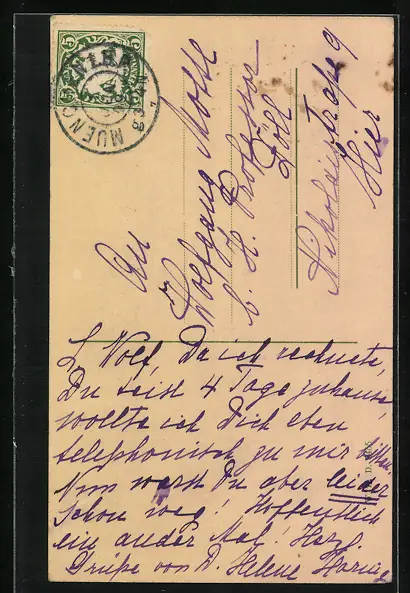 5 5
MUENCHEN
An
Wolfgang
b. H. Professor
Nikolaistraße 9
Hier
L. Wolf, Da ich rechnete,
Du seist 4 Tage zuhause
wollte ich Dich eben
telephonisch zu mir bitten
Nun warst Du aber leider
schon weg! Hoffentlich
ein ander Mal! Herzl.
Grüße von D. Helene